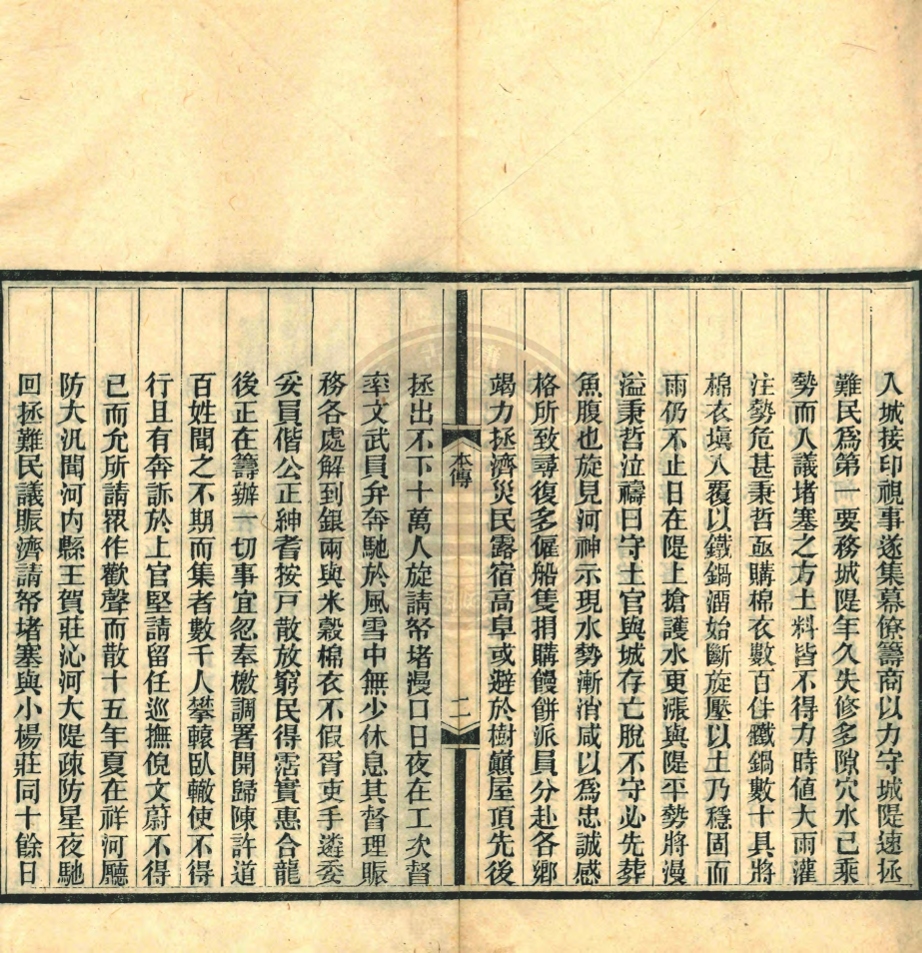 入城接印視事遂集幕僚籌商以力守城隄速拯
難民爲第一要務城隄年久失修多隙穴水已乘
勢而入議堵塞之方土料皆不得力時値大雨灌
注勢危甚秉哲亟購棉衣數百件鐵鍋數十具將
棉衣塡入覆以鐵鍋溜始斷旋壓以土乃穩固而
雨仍不止日在隄上搶護水更漲與隄平勢將漫
溢秉哲泣禱曰守土官與城存亡脫不守必先葬
魚腹也旋見河神示現水勢漸消咸以爲忠誠感
格所致尋復多僱船隻捐購饅餅派員分赴各鄉
竭力拯濟災民露宿高阜或避於樹顚屋頂先後
本傳
二
拯出不下十萬人旋請帑堵漫口日夜在工次督
率文武員弁奔馳於風雪中無少休息其督理賑
務各處解到銀兩與米穀棉衣不假胥吏手遴委
妥員偕公正紳耆按戸散放窮民得霑實惠合龍
後正在籌辦一切事宜忽奉檄調署開歸陳許道
百姓聞之不期而集者數千人攀轅臥轍使不得
行且有奔訴於上官堅請留任巡撫倪文蔚不得
已而允所請眾作歡聲而散十五年夏在祥河廳
防大汛聞河內縣王賀莊沁河大隄疎防星夜馳
回拯難民議賑濟請帑堵塞與小楊莊同十餘日